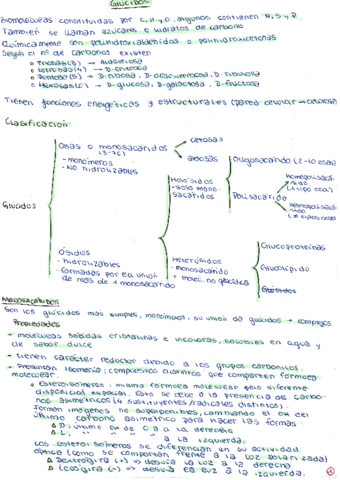 GLÚCIDOS
Biomoléculas constituidas por C, H y O, algunos contienen N, S y P.
También se llaman azúcares e hidratos de carbono
Químicamente son polihidroxialdehídos o polihidroxicetonas
Según el nº de carbonos existen
Triosas(3)
Tetrosas(4) → D-eritrosa
Pentosas(5) → D-ribosa, D-desoxirribosa, D-ribulosa
Hexosas(6) → D-glucosa, D-galactosa, D-fructosa
Tienen funciones energéticas y estructurales (pared celular → celulosa)
Clasificación:
Osas o monosacáridos (3-7C)
cetosas
aldosas
- monómeros
- NO hidrolizables
Glúcidos
Holósidos
- solo monosacáridos
Oligosacárido (2-10 osas)
Polisacárido
Homopolisacárido
(1 tipo osa)
Heteropolisacárido
Ósidos
- hidrolizables
- formadas por la unión
de más de 1 monosacárido
Heterósidos
- monosacárido
+ molec. no glucídica
Glucoproteínas
Glucolípido
MONOSACÁRIDOS
Son los glúcidos más simples, monómeros, su unión da glúcidos + complejos.
Propiedades
• moléculas sólidas cristalinas e incoloras, solubles en agua y
de sabor dulce
• tienen carácter reductor debido a los grupos carbonilos.
• Presentan isomería: compuestos distintos que comparten fórmula
molecular.
• Estereoisómeros: misma fórmula molecular pero diferente
disposición espacial. Esto se debe a la presencia de carbonos
asimétricos (4 sustituyentes/radicales distintos).
Forman imágenes no superponibles, cambiando el OH del
último carbono asimétrico para hacer las formas:
Δ D, último OH de C a la derecha
Δ L, " " " " a la izquierda.
Los estereoisómeros se diferencian en su actividad
óptica (como se comportan frente a la luz polarizada)
Δ Dextrógira (+) ⇒ desvía la luz a la derecha
Δ Levógira (-) ⇒ desvía la luz a la izquierda.